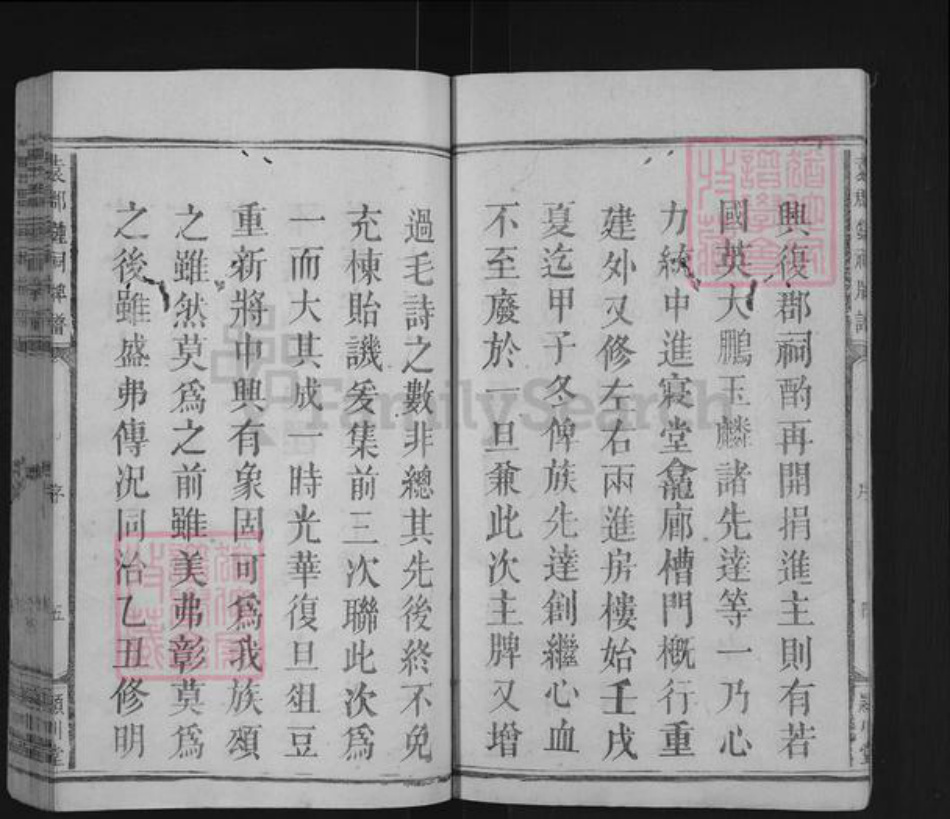 興復郡祠酌再開捐進主則有若
國英大鵬玉麟諸先達等一乃心
力統中進寢堂龕廊槽門概行重
建外又修左右兩進房樓始壬戌
夏迄甲子冬俾族先達創繼心血
不至廢於一旦兼此次主牌又增
過毛詩之數非總其先後終不免
充棟貽譏爰集前三次聯此次為
一而大其成一時光華復旦俎豆
重新將中興有象固可為我族頌
之雖然莫為之前雖美弗彰莫為
之後雖盛弗傳况同治乙丑修明
序
五
潁川堂
FamilySearch